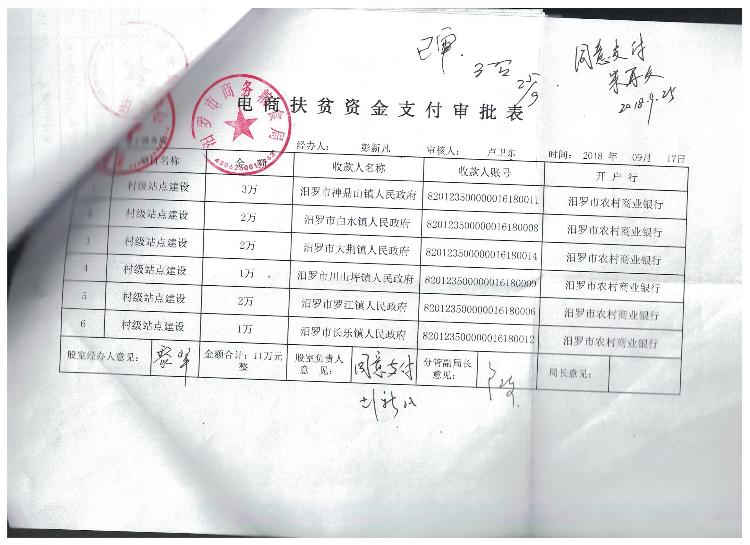 已审
25/9
同意支付
2018.9.25
电商扶贫资金支付审批表
汨罗市商务粮食局
经办人: 彭新凡 审核人: 卢卫东 时间: 2018 年 09月 17日
项目名称 金 额 收款人名称 收款人账号 开 户 行
村级站点建设 3万 汨罗市神鼎山镇人民政府 82012350000016180011 汨罗市农村商业银行
2 村级站点建设 2万 汨罗市白水镇人民政府 82012350000016180008 汨罗市农村商业银行
3 村级站点建设 2万 汨罗市大荆镇人民政府 82012350000016180014 汨罗市农村商业银行
4 村级站点建设 1万 汨罗市川山坪镇人民政府 82012350000016180009 汨罗市农村商业银行
5 村级站点建设 2万 汨罗市罗江镇人民政府 82012350000016180006 汨罗市农村商业银行
6 村级站点建设 1万 汨罗市长乐镇人民政府 82012350000016180012 汨罗市农村商业银行
股室经办人意见: 金额合计: 11万元整 股室负责人意 见: 同意支付 分管副局长意见: 局长意见:
彭新凡